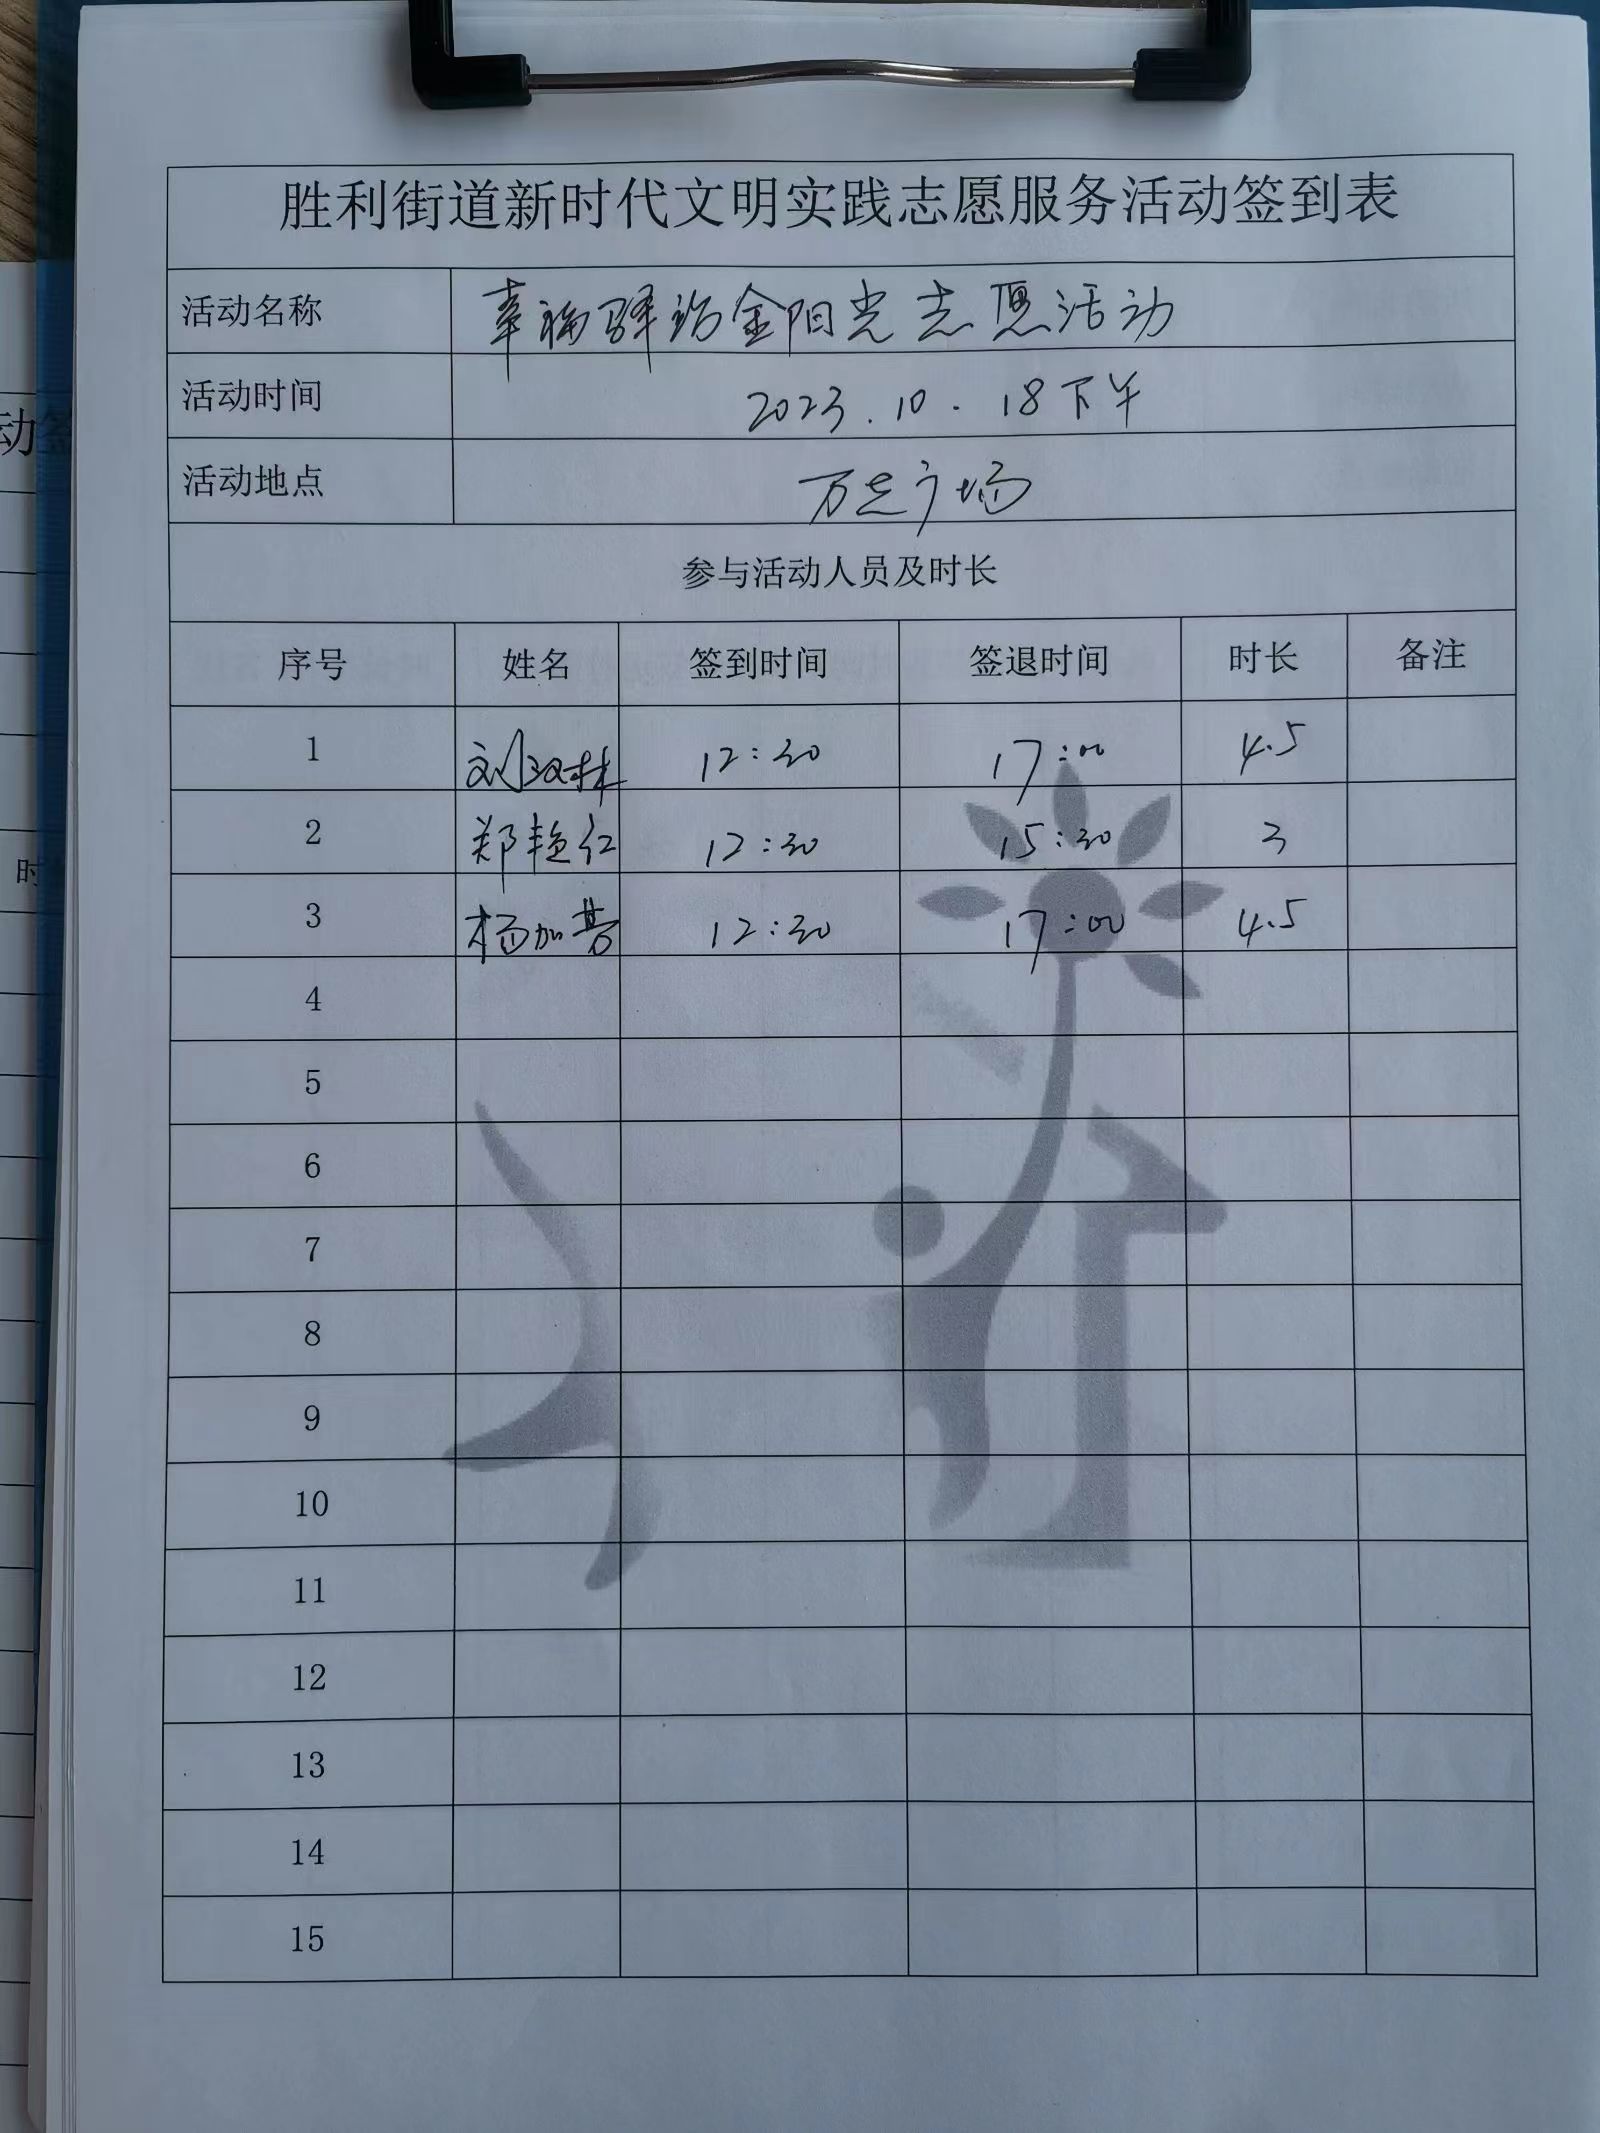 胜利街道新时代文明实践志愿服务活动签到表
活动名称 幸福驿站金阳光志愿活动
活动时间 2023.10.18下午
活动地点 万达广场
参与活动人员及时长
序号 姓名 签到时间 签退时间 时长 备注
1 刘汉林 12:30 17:00 4.5
2 郑艳红 12:30 15:30 3
3 杨加 12:30 17:00 4.5
4
5
6
7
8
9
10
11
12
13
14
15
动签
时